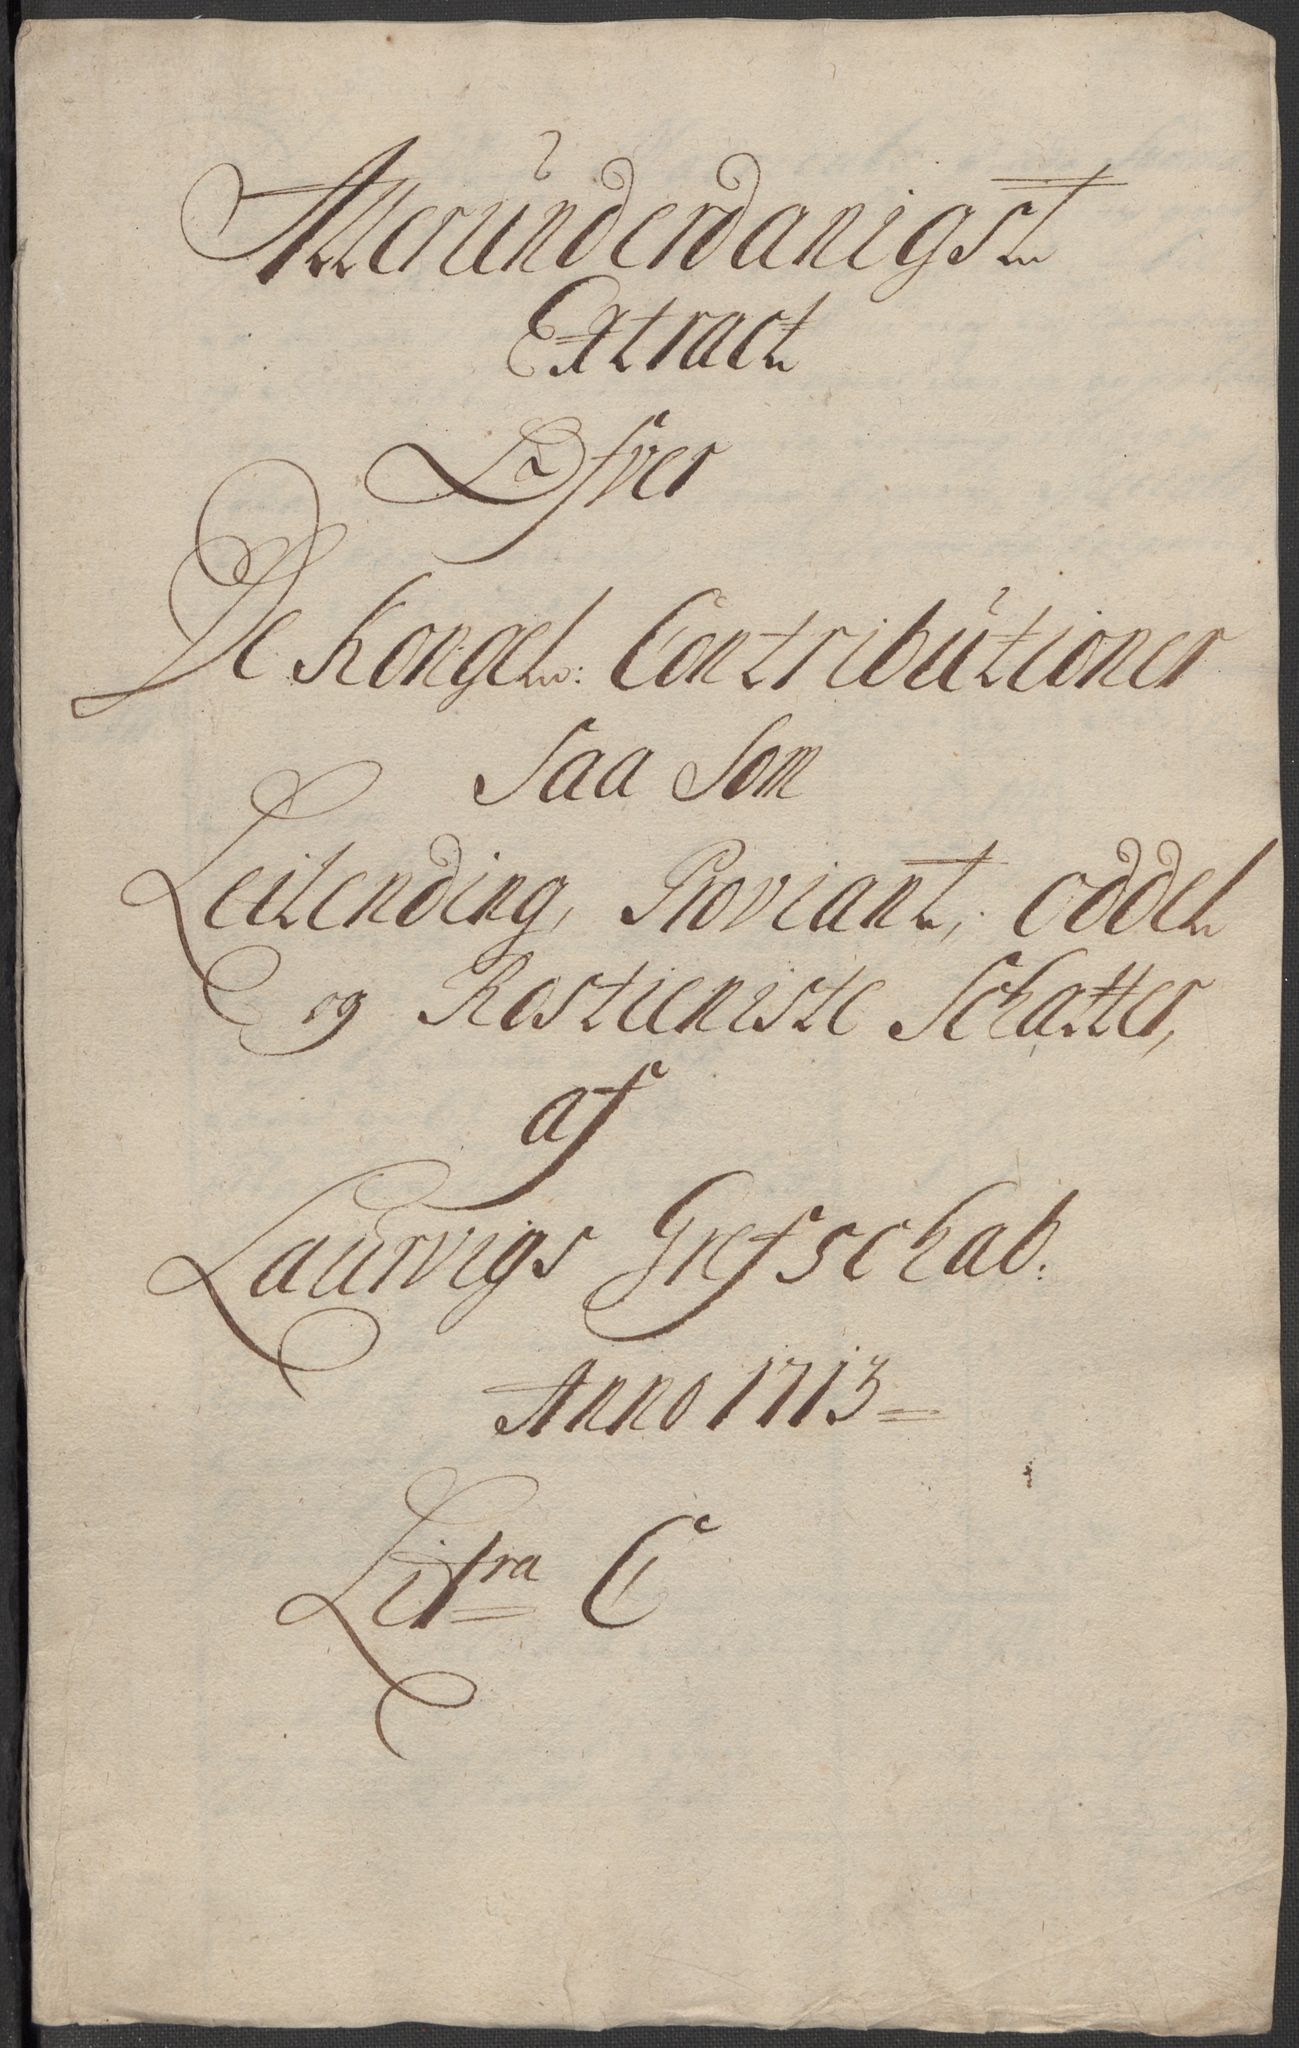 Allerúnderdanigst
Extract
Ofver
De Kongel: Contribútioner
Saa Som
Leilending, Proviant, Oddel
og Rostieniste Schatter,
af
Laúrvigs Grefschab:
Anno 1713
Litra C